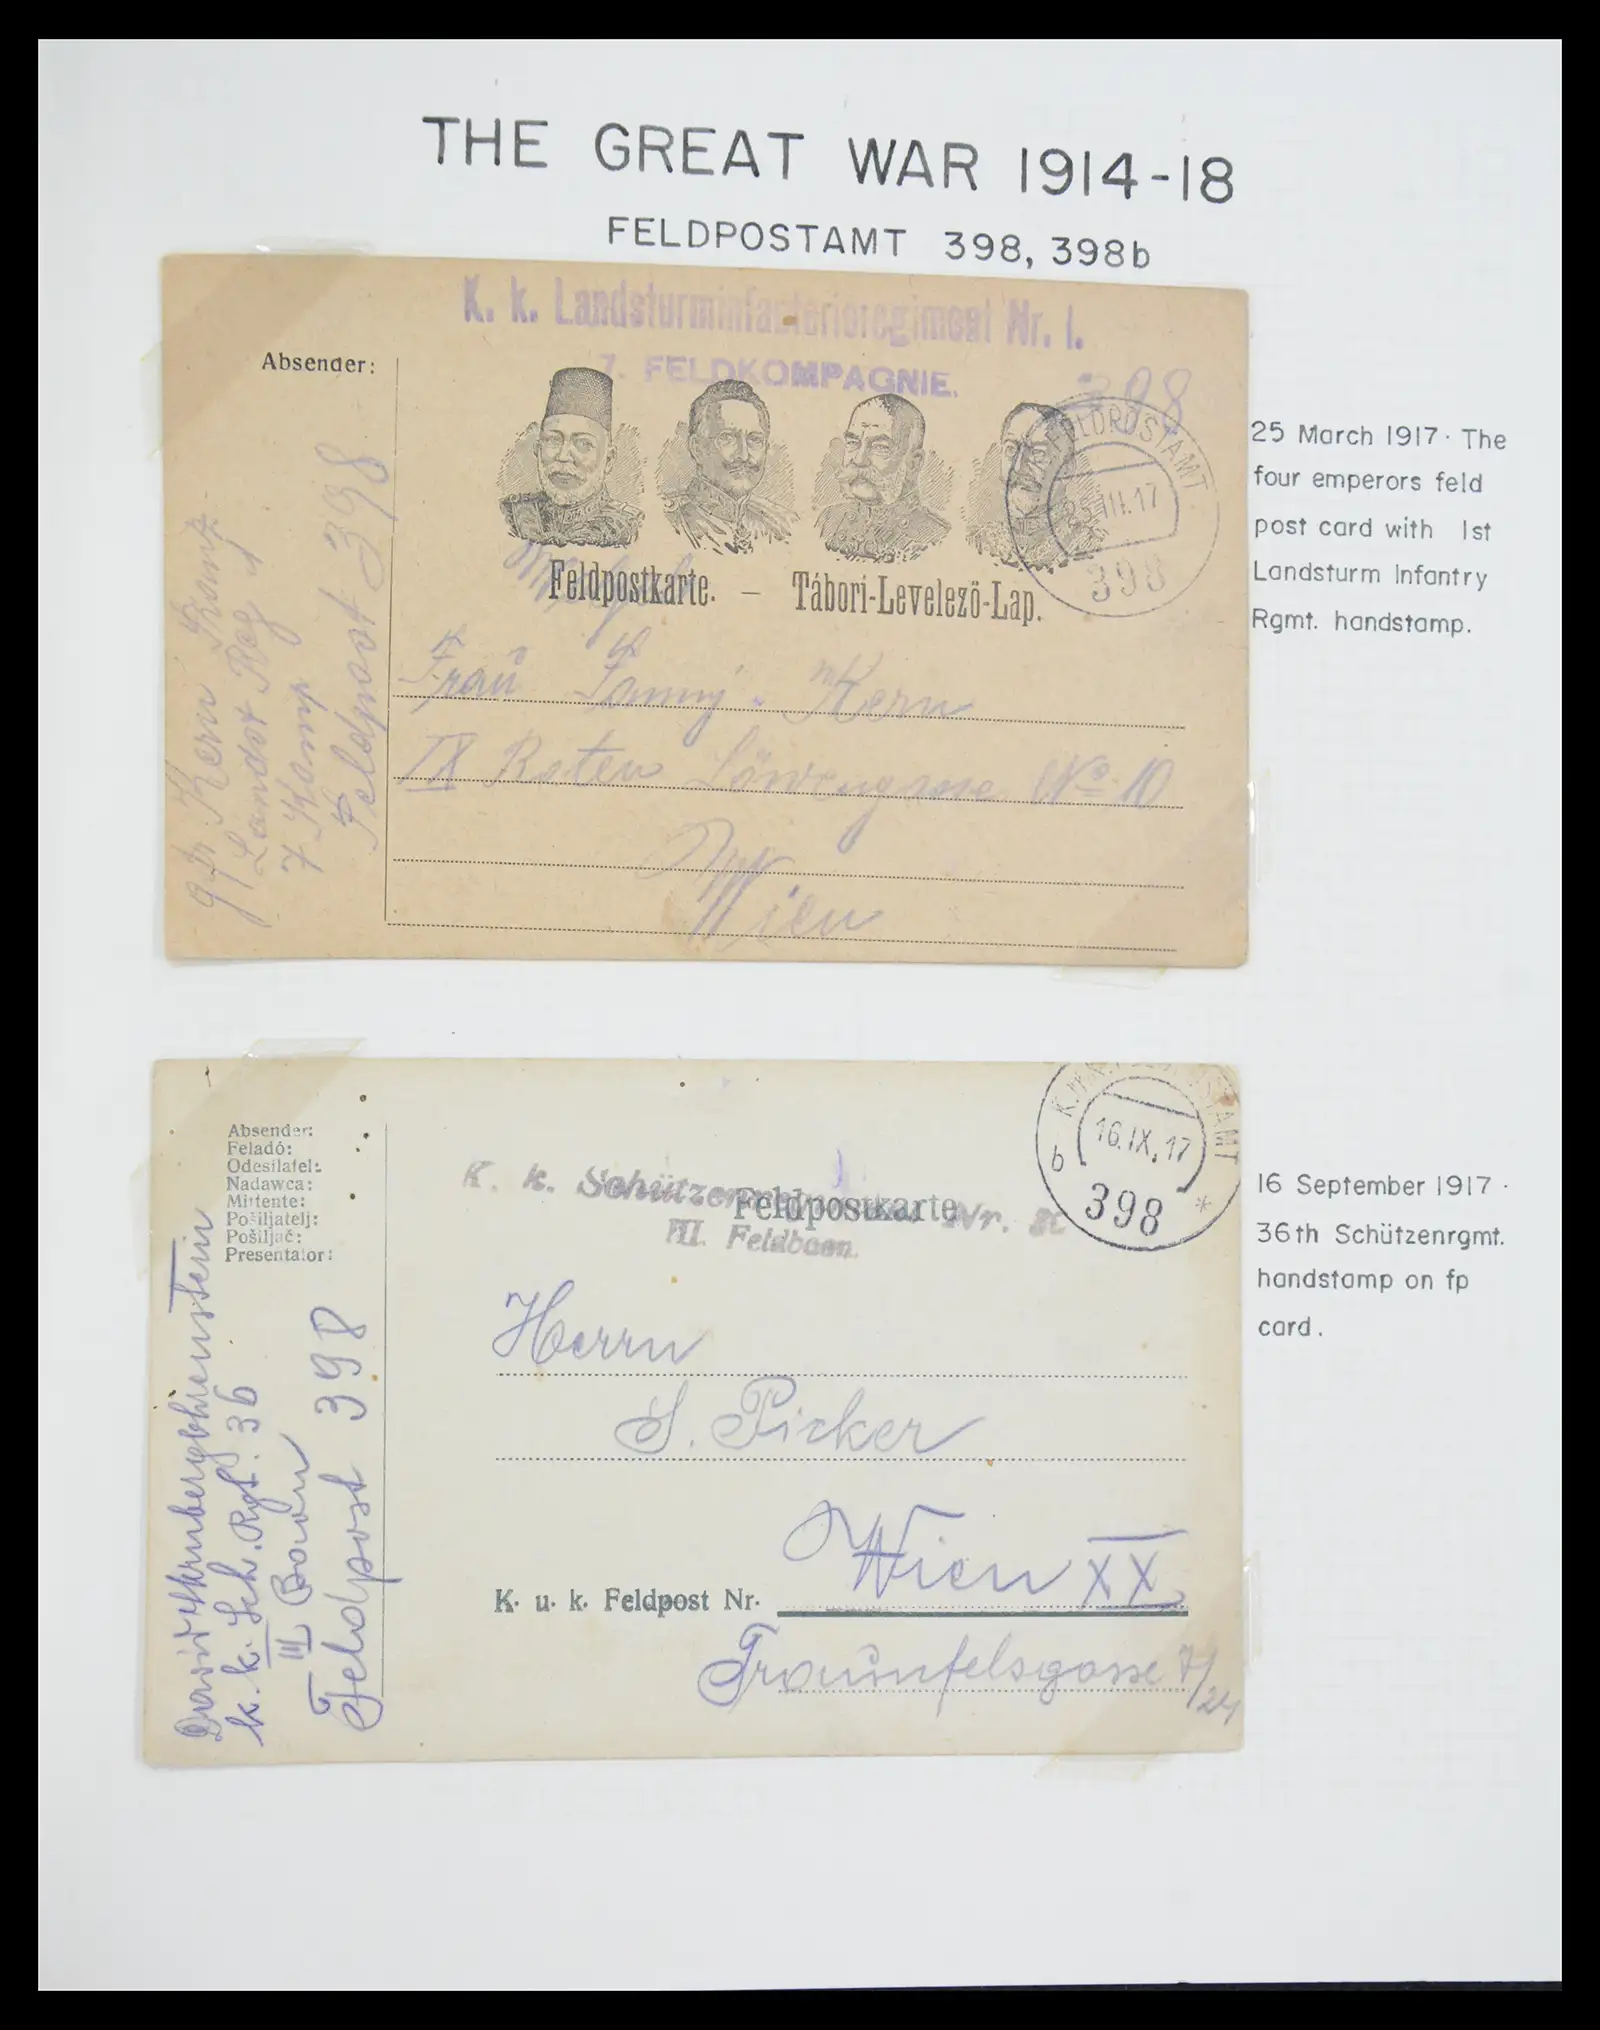 THE GREAT WAR 1914-18
FELDPOSTAMT 398, 398b
K. k. Landsturminfanterieregiment Nr. 1.
7. FELDKOMPAGNIE.
398
Absender:
FELDPOSTAMT
25.III.17
398
Feldpostkarte. — Tábori-Levelező-Lap.
Frau Fanny Kern
IX Roten Löwengasse No 10
Wien
Kern
7 Komp
Feldpost 398
25 March 1917. The
four emperors feld
post card with 1st
Landsturm Infantry
Rgmt. handstamp.
16.IX.17
b
398
*
Absender:
Feladó:
Odesílatel:
Nadawca:
Mittente:
Pošiljatelj:
Pošiljač:
Presentator:
K. k. Schützen Nr.
III. Feldbaon.
Feldpostkarte
Herrn
S. Picker
Wien XX
K. u. k. Feldpost Nr.
Traunfelsgasse 7/24
k. k. Sch. Rgt. 36
III Baon
Feldpost 398
16 September 1917.
36th Schützenrgmt.
handstamp on fp
card.